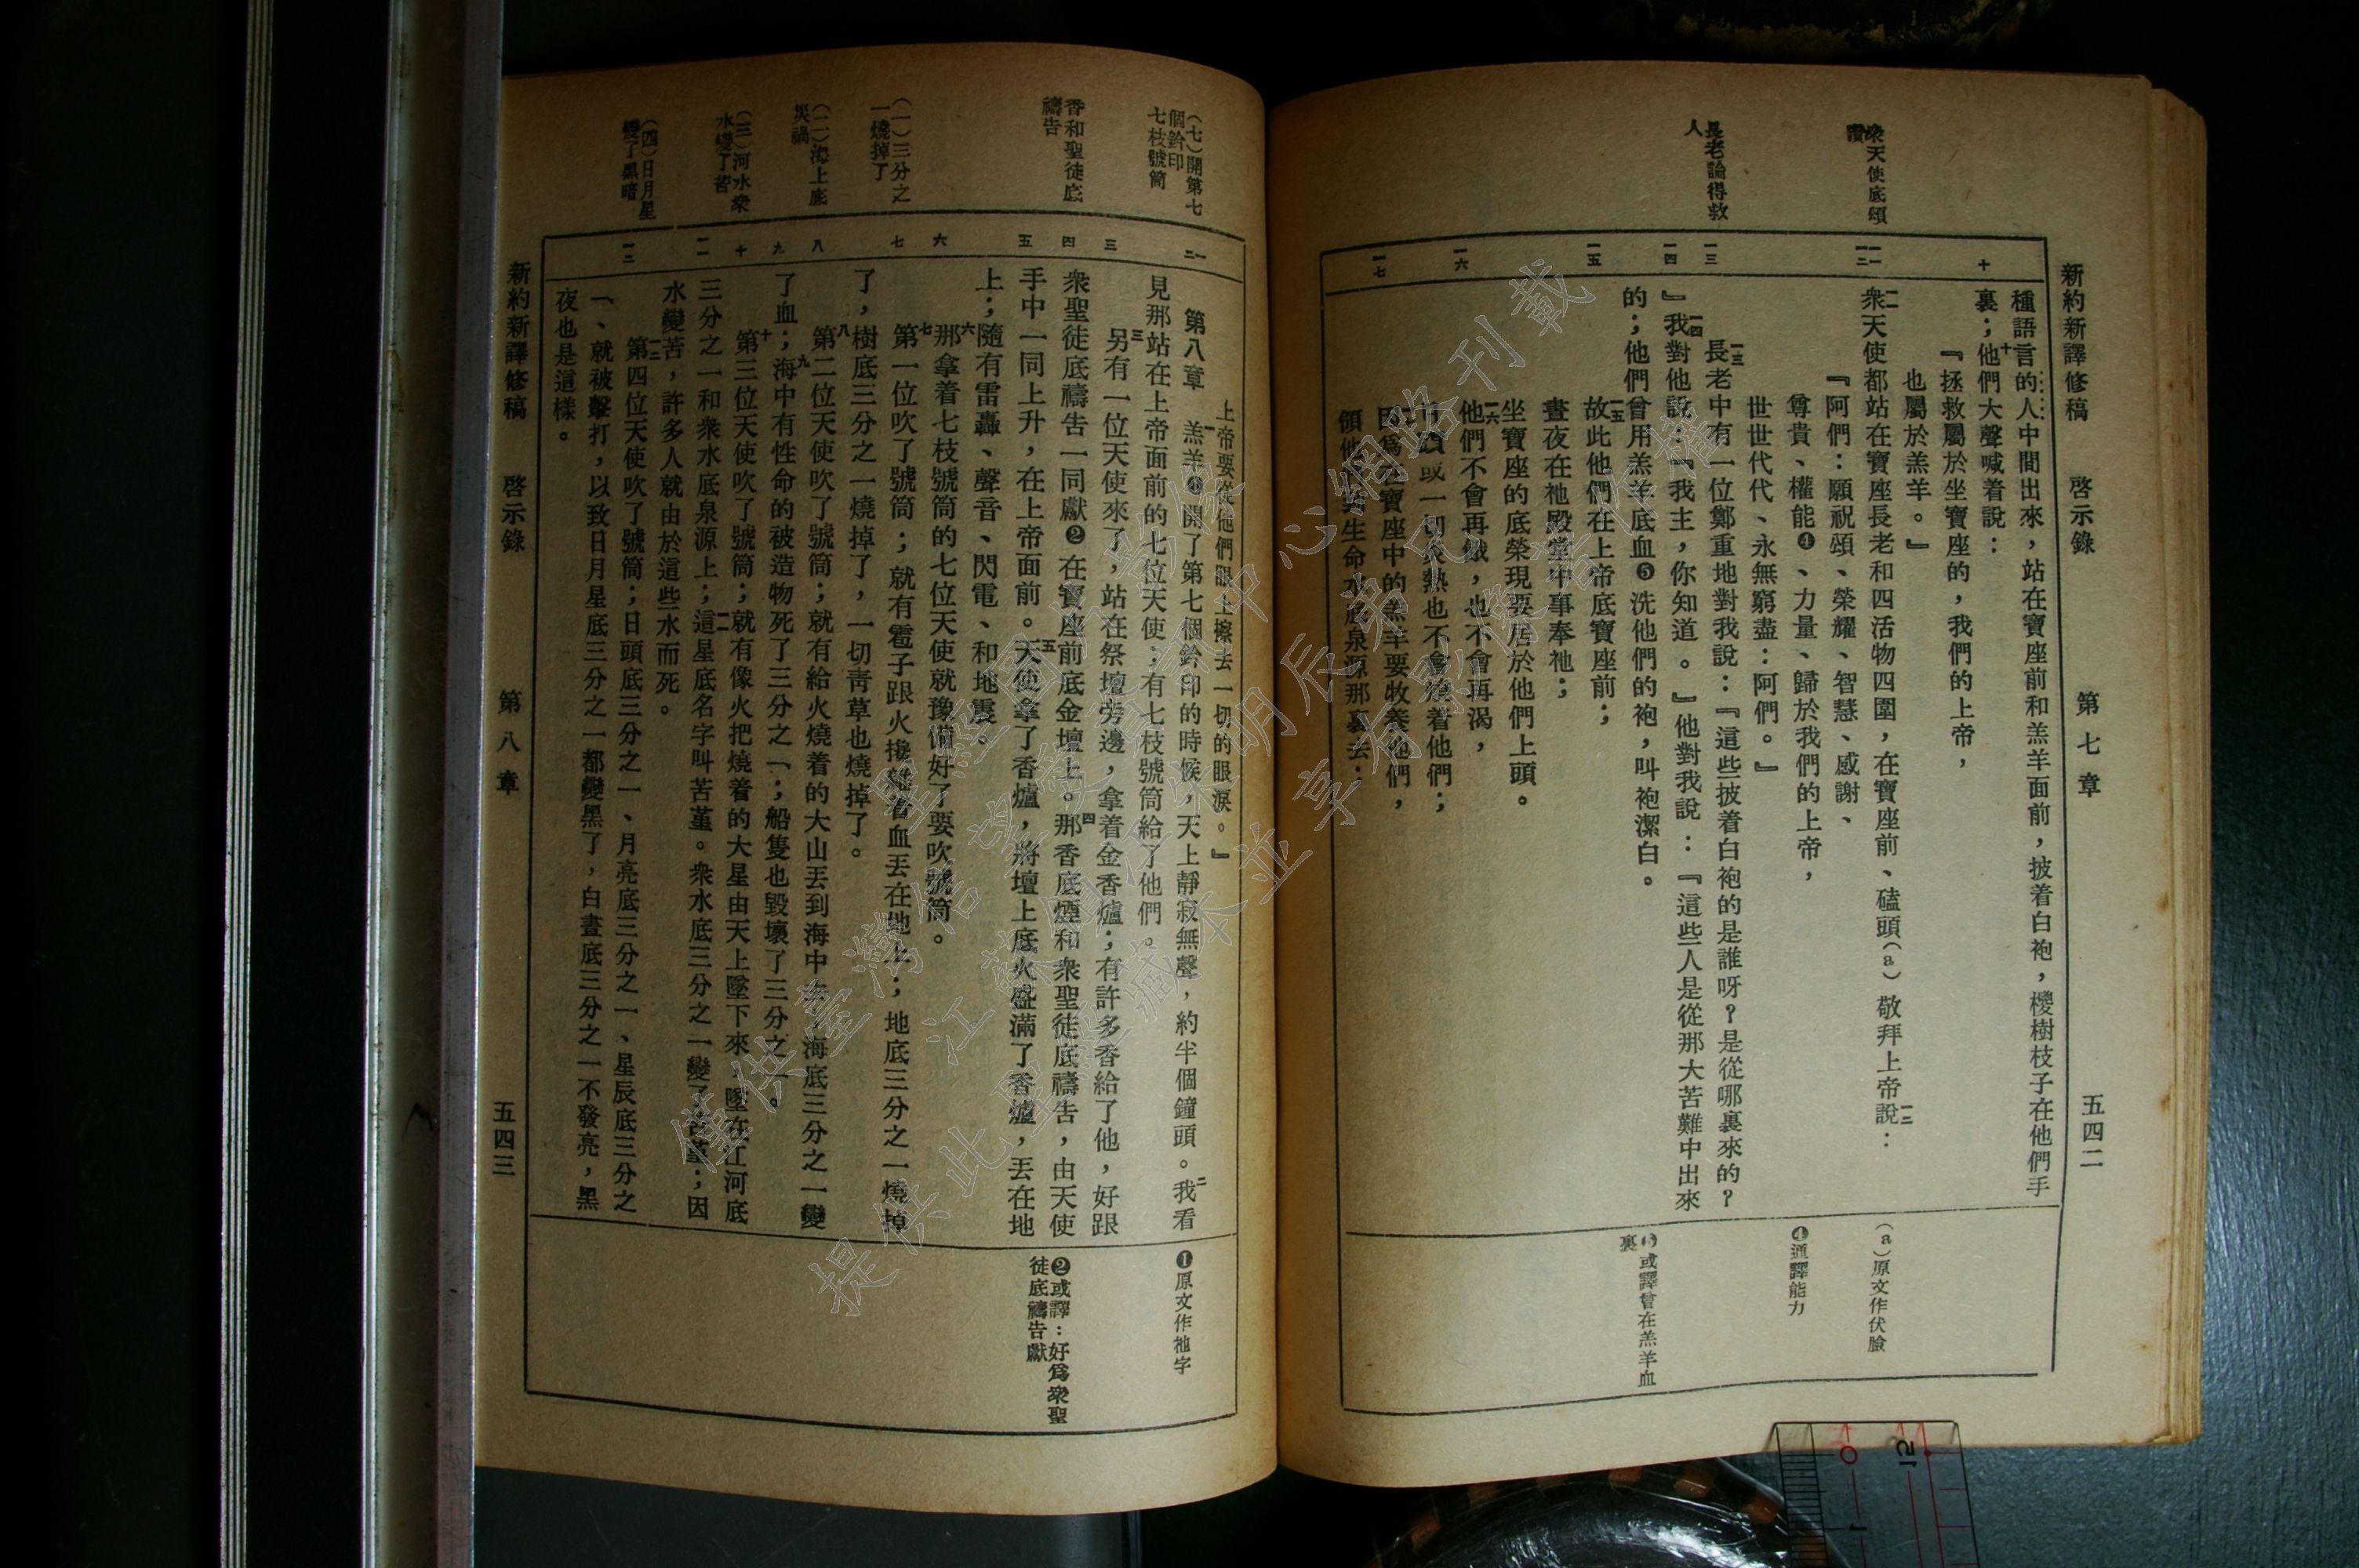 新約新譯修稿　啓示錄　第七章　五四二
衆天使底頌讚
長老論得救人
十
一一
一二
一三
一四
一五
一六
一七
種語言的人中間出來，站在寶座前和羔羊面前，披着白袍，椶樹枝子在他們手
裏；十他們大聲喊着說：
『拯救屬於坐寶座的，我們的上帝，
也屬於羔羊。』
一一衆天使都站在寶座長老和四活物四圍，在寶座前、磕頭(a)敬拜上帝一二說：
『阿們：願祝頌、榮耀、智慧、感謝、
尊貴、權能❹、力量、歸於我們的上帝，
世世代代、永無窮盡：阿們。』
一三長老中有一位鄭重地對我說：『這些披着白袍的是誰呀？是從哪裏來的？
』一四我對他說：『我主，你知道。』他對我說：『這些人是從那大苦難中出來
的；他們曾用羔羊底血❺洗他們的袍，叫袍潔白。
一五故此他們在上帝底寶座前；
晝夜在祂殿堂中事奉祂；
坐寶座的底榮現要居於他們上頭。
一六他們不會再餓，也不會再渴，
或一切炎熱也不會燒着他們；
因爲在寶座中的羔羊要牧養他們，
領他們到生命水底泉源那裏去；
(a)原文作伏臉
❹通譯能力
❺或譯曾在羔羊血裏
新約新譯修稿　啓示錄　第八章　五四三
(七)開第七個鈐印
七枝號筒
香和聖徒底禱告
(一)三分之一燒掉了
(二)海上底災禍
(三)河水衆水變了苦
(四)日月星變了黑暗
一
二
三
四
五
六
七
八
九
十
一一
一二
上帝要從他們眼上擦去一切的眼淚。』
第八章　一羔羊❶開了第七個鈐印的時候，天上靜寂無聲，約半個鐘頭。二我看
見那站在上帝面前的七位天使；有七枝號筒給了他們。
三另有一位天使來了，站在祭壇旁邊，拿着金香爐；有許多香給了他，好跟
衆聖徒底禱告一同獻❷在寶座前底金壇上。四那香底煙和衆聖徒底禱告，由天使
手中一同上升，在上帝面前。五天使拿了香爐，將壇上底火盛滿了香爐，丟在地
上；隨有雷轟、聲音、閃電、和地震。
六那拿着七枝號筒的七位天使就豫備好了要吹號筒。
七第一位吹了號筒；就有雹子跟火攙雜着血丟在地上；地底三分之一燒掉
了，樹底三分之一燒掉了，一切靑草也燒掉了。
八第二位天使吹了號筒；就有給火燒着的大山丟到海中去，海底三分之一變
了血；九海中有性命的被造物死了三分之一；船隻也毀壞了三分之一。
十第三位天使吹了號筒；就有像火把燒着的大星由天上墜下來，墜在江河底
三分之一和衆水底泉源上；一一這星底名字叫苦堇。衆水底三分之一變了苦堇；因
水變苦，許多人就由於這些水而死。
一二第四位天使吹了號筒；日頭底三分之一、月亮底三分之一、星辰底三分之
一、就被擊打，以致日月星底三分之一都變黑了，白晝底三分之一不發亮，黑
夜也是這樣。
❶原文作祂字
❷或譯：好爲衆聖徒底禱告獻